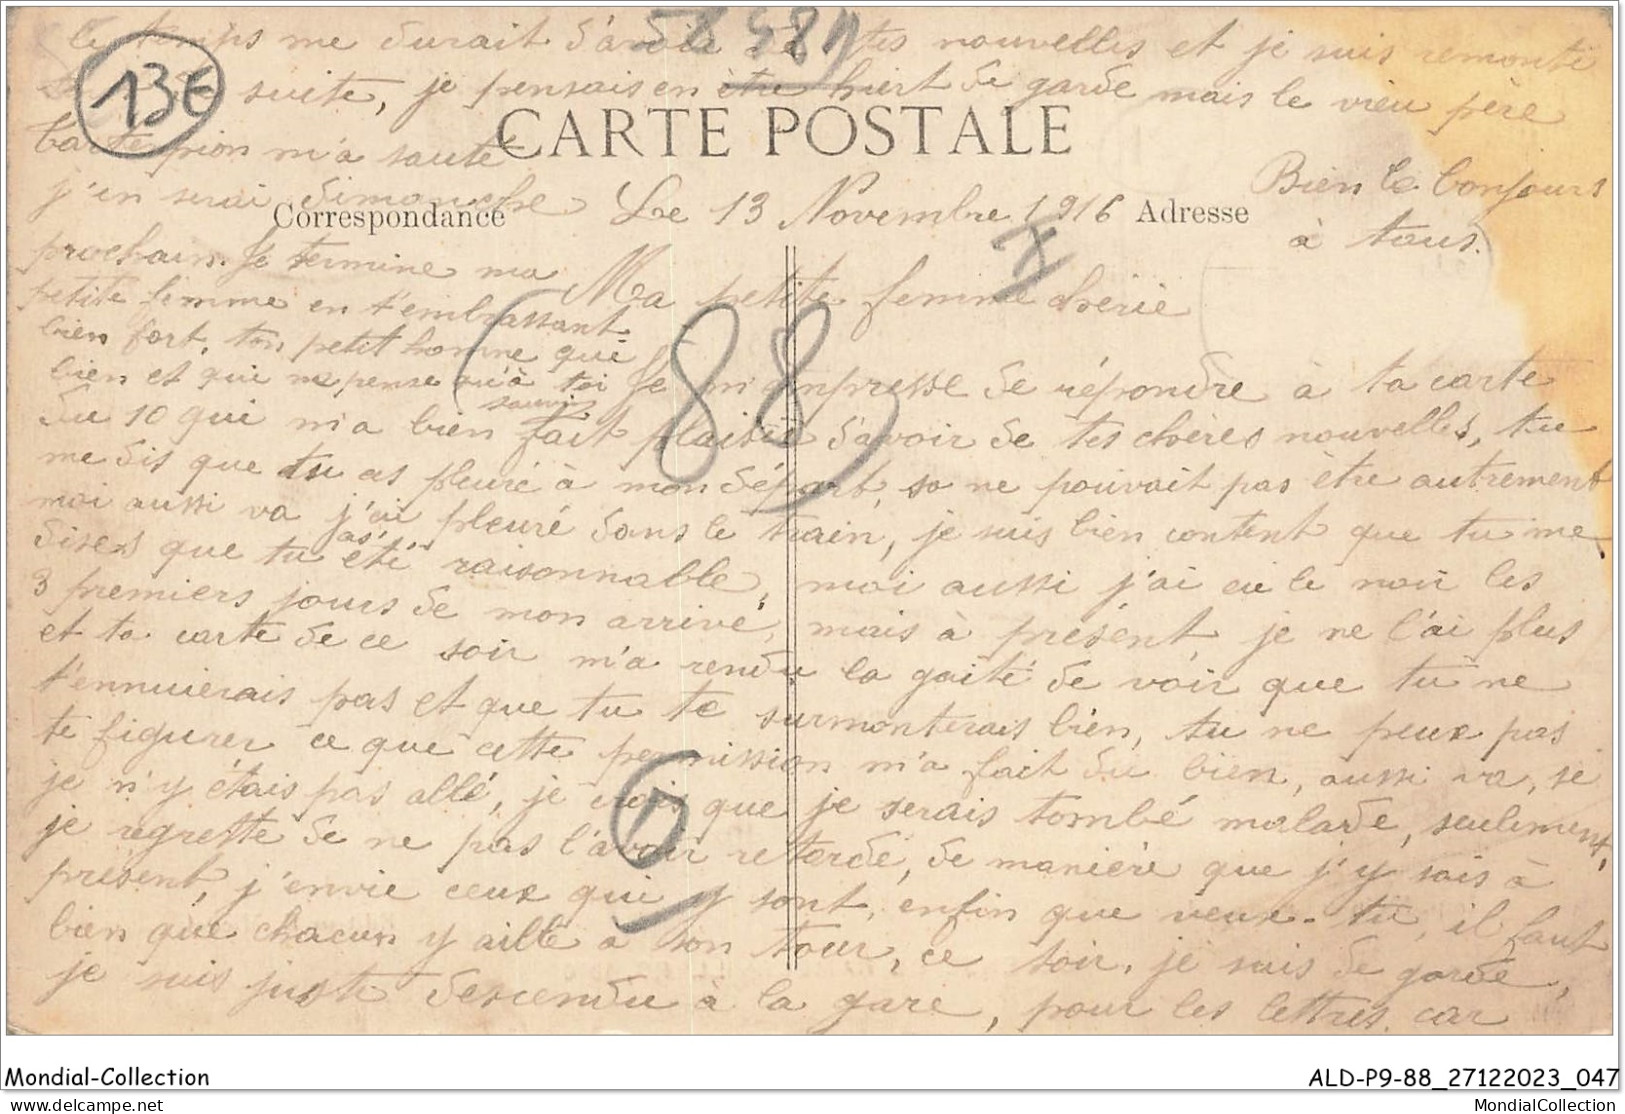 le temps me durait d'avoir de tes nouvelles et je suis remonté
suite, je pensais en être hiert de garde mais le vieu père
m'a sauté
CARTE POSTALE
j'en serai dimanche
Correspondance
Le 13 Novembre 1916
Adresse
Bien le bonjours
à tous.
prochain. Je termine ma
petite femme en t'embrassant
bien fort, ton petit homme qui
bien et qui ne pense qu'à toi
Ma petite femme chérie
Je m'empresse de répondre à ta carte
du 10 qui m'a bien fait plaisir d'avoir de tes chères nouvelles, tu
me dis que tu as pleuré à mon départ, sa ne pouvait pas être autrement
moi aussi va j'ai pleuré dans le train, je suis bien content que tu me
dises que tu as été raisonnable, moi aussi j'ai eu le noir les
3 premiers jours de mon arrivé, mais à présent, je ne l'ai plus
et ta carte de ce soir m'a rendu la gaité de voir que tu ne
t'ennuierais pas et que tu te surmonterais bien, tu ne peux pas
te figurer ce que cette permission m'a fait du bien, aussi va, si
je n'y étais pas allé, je crois que je serais tombé malade, seulement,
je regrette de ne pas l'avoir retardé, de manière que j'y sois à
présent, j'envie ceux qui y sont, enfin que veux-tu, il faut
bien que chacun y aille à son tour, ce soir, je suis de garde,
je suis juste descendu à la gare, pour les lettres, car
13€
88
Mondial-Collection
ALD-P9-88_27122023_047
mondial-collection.delcampe.net
MondialCollection